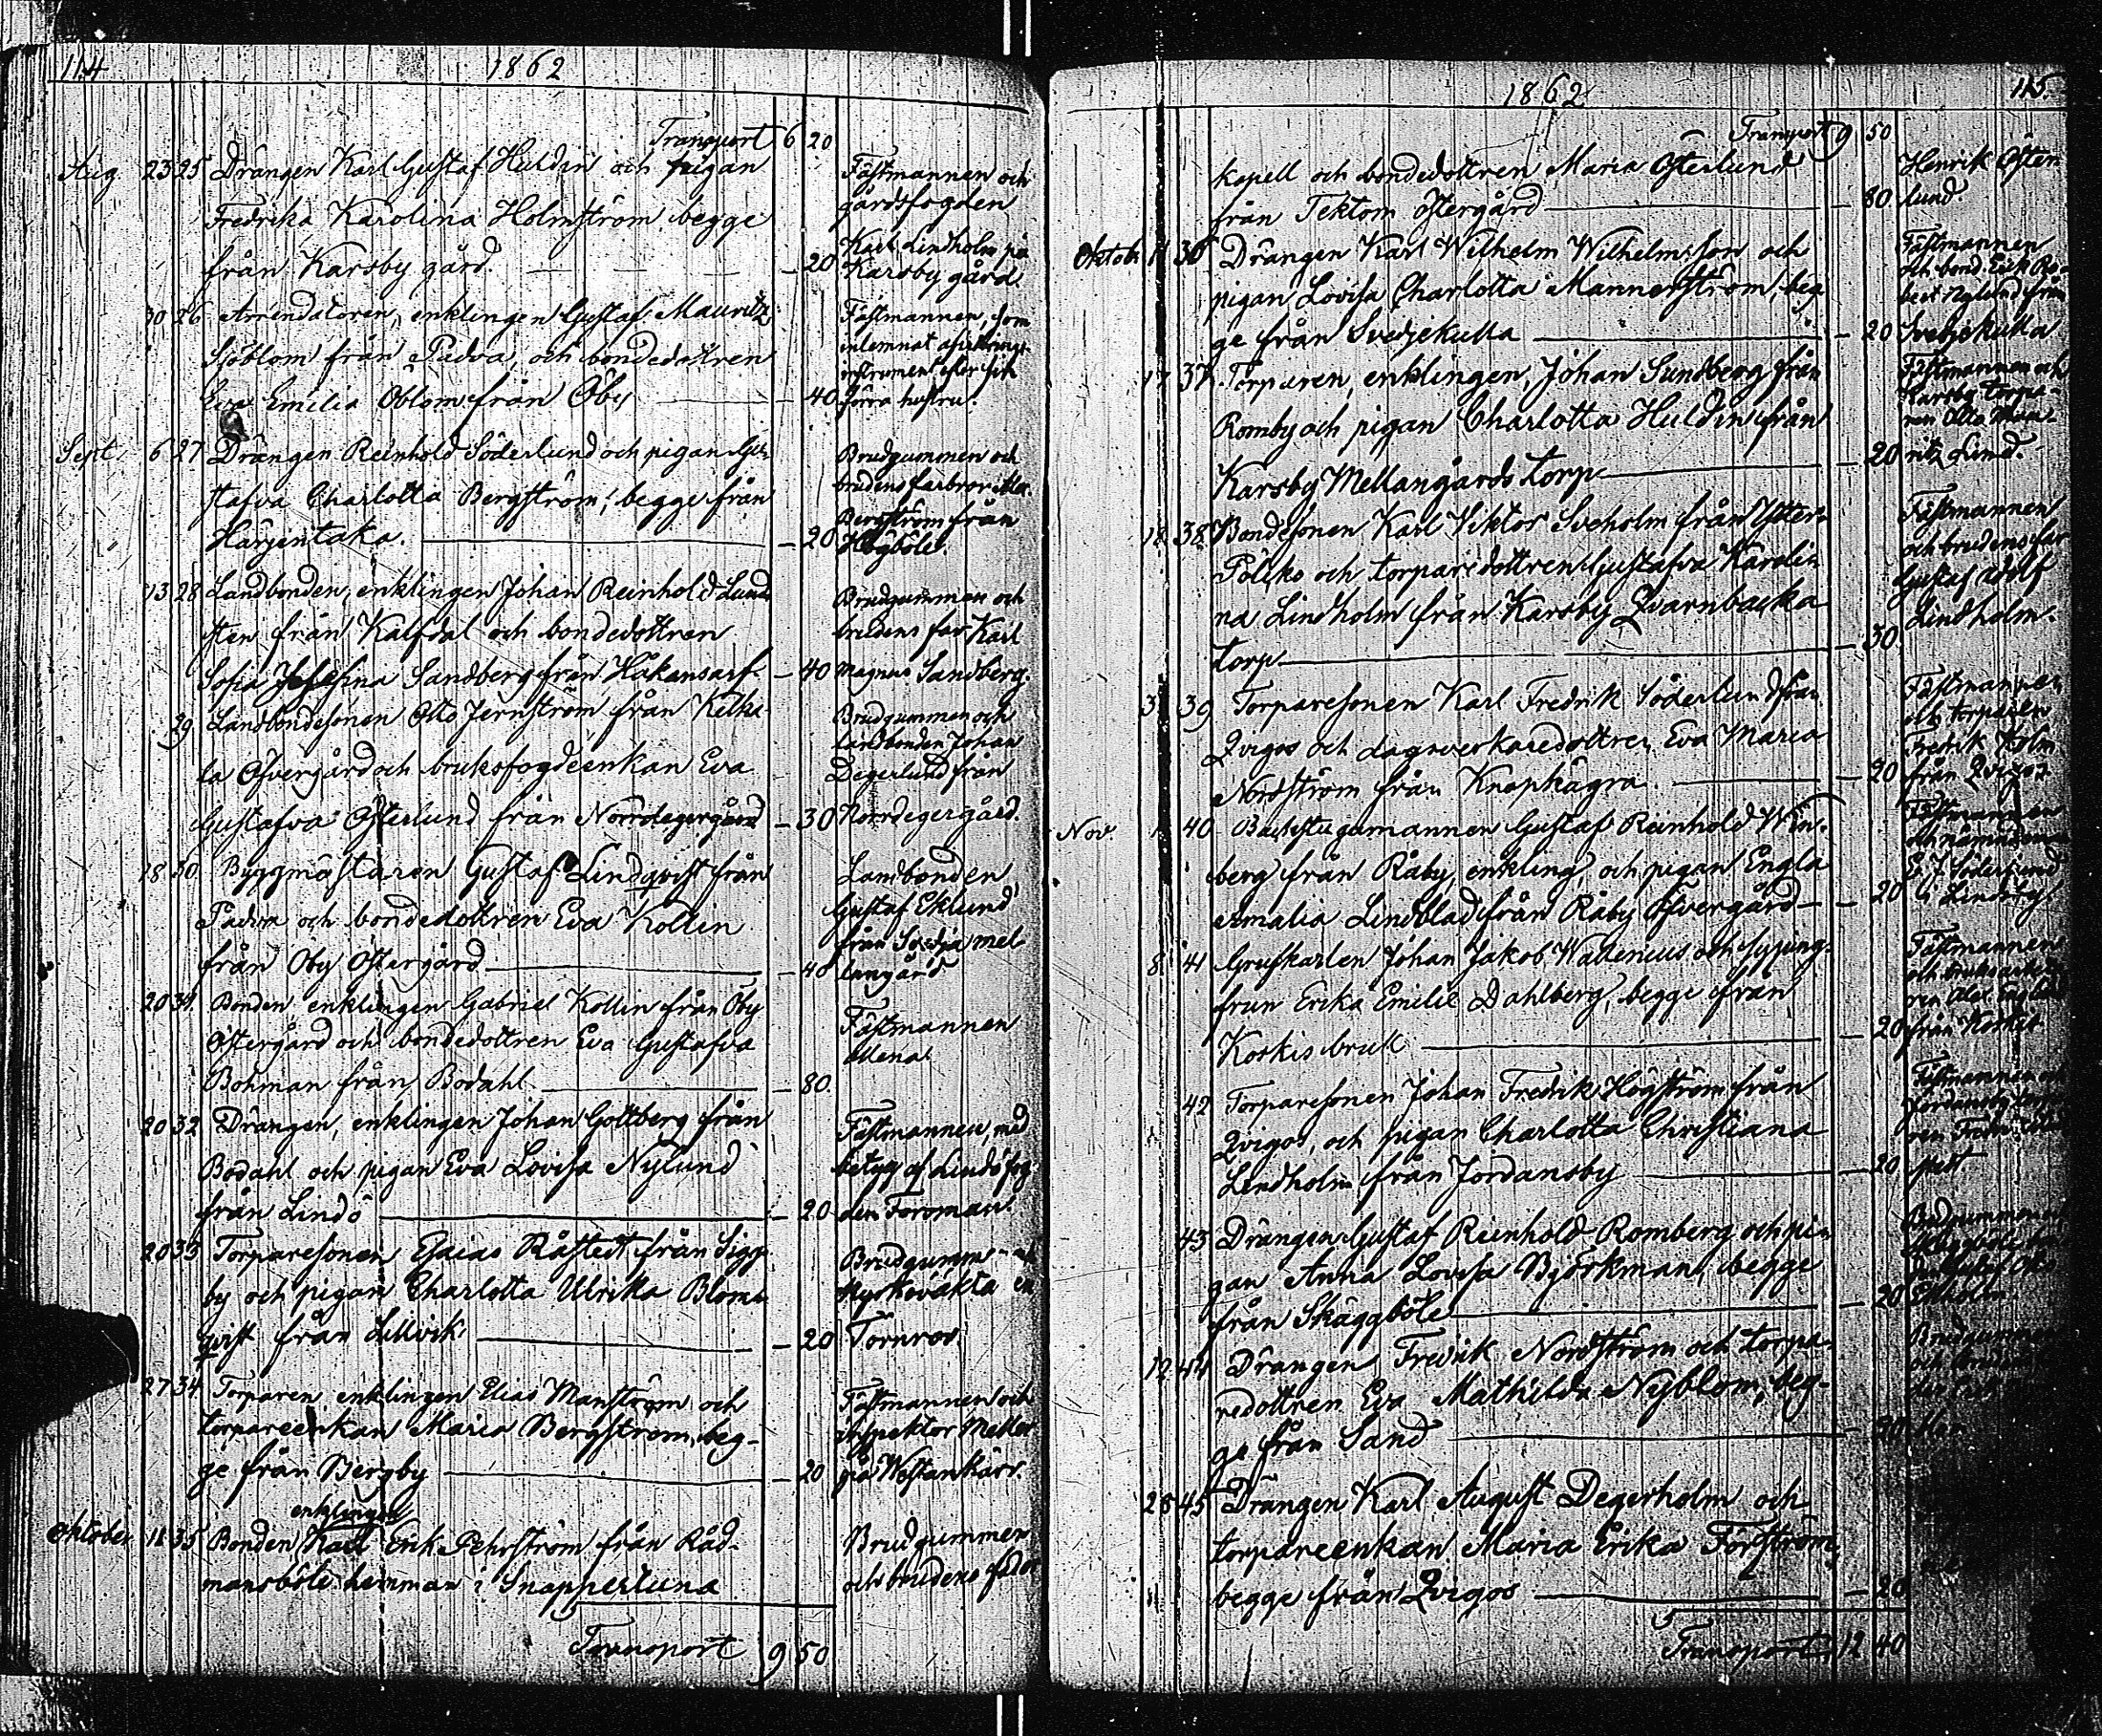 114
1862
Transport 6 20
Aug 23 25 Drängen Karl Gustaf Huldin och pigan
Fredrika Karolina Holmström begge
från Karsby gård. — 20
Fästmannen och
gårdsfogden
Karl Lindholm på
Karsby gård.
30 26 Arrendatorn, enklingen Gustaf Mauritz
Sjöblom från Padva, och bondedottren
Eva Emilia Öblom från Öby — 40
Fästmannen, som
inlemnat
instrument efter sin
förra hustru.
Sept. 6 27 Drängen Reinhold Söderlund och pigan Gu-
stafva Charlotta Bergström, begge från
Harjentaka. — 20
Brudgummen och
brudens farbror
Bergström från
Högböle.
13 28 Landbonden, enklingen Johan Reinhold Lund
sten från Kalfdal och bondedottren
Sofia Josefina Sandberg från Håkansarf — 40
Brudgummen och
brudens far Karl
Magnus Sandberg.
29 Landbondesonen Otto Jernström från Kelka
la Öfvergård och bruksfogdeenkan Eva
Gustafva Österlund från Norrdegergård — 30
Brudgummen och
landbonden Johan
Degerlund från
Norrdegergård.
18 30 Byggmästaren Gustaf Lindqvist från
Padva och bondedottren Eva Kollin
från Öby Östergård — 40
Landbonden
Gustaf Eklund
från mel-
langård
20 31 Bonden, enklingen Gabriel Kollin från Öby
Östergård och bondedottren Eva Gustafva
Bohman från Bodahl — 80.
Fästmannen
allena.
20 32 Drängen, enklingen Johan Gottberg från
Bodahl och pigan Eva Lovisa Nylund
från Lindö — 20
Fästmannen, med
betyg af Lindö fog-
den Forsman.
20 33 Torparesonen Esaias Råstedt från Sigg
by och pigan Charlotta Ulrika Blom-
qvist från Lillvik — 20
Brudgummen
kyrkovakta en
Tornroos.
27 34 Torparen, enklingen Elias Manström och
torpareenkan Maria Bergström, beg-
ge från Bergby — 20
Fästmannen och
inspektor Meller
på Westankärr.
Oktober 11 35 Bonden, enklingen Karl Erik Pehrström från Råd-
mansböle hemman i Snappertuna
Brudgummen
och brudens fader
Transport 9 50
1862
115
Transport 9 50
kapell och bondedottren Maria Österlund
från Tektom Östergård — 80
Henrik Öster-
lund.
Oktob. 11 36 Drängen Karl Wilhelm Wilhelmsson och
pigan Lovisa Charlotta Mannerström, beg
ge från Svedjekulla — 20
Fästmannen
och bond. Erik Ro-
bert Nylund från
Svedjekulla
17 37 Torparen, enklingen, Johan Sundberg från
Romby och pigan Charlotta Huldin från
Karsby Mellangårds torp — 20
Fästmannen och
Karsby torpa-
ren Otto Mau-
ritz Lind.
18 38 Bondesonen Karl Viktor Sveholm från Ytter
Pölko och torparedottren Gustafva Karoli-
na Lindholm från Karsby Qvarnbacka
torp — 30.
Fästmannen
och brudens far
Gustaf Adolf
Lindholm.
31 39 Torparesonen Karl Fredrik Söderlund från
Qvigos och dagsverkaredottren Eva Maria
Nordström från Knapkägra — 20
Fästmannen
och torparen
Fredrik Holm
från Qvigos
Nov. 1 40 Backstugumannen Gustaf Reinhold Win-
berg från Råby, enkling, och pigan Engla
Amalia Lindblad från Råby Öfvergård — 20
Fästmannen
och nämndeman
E. J. Söderlund
i Lindöby
8 41 Grufkarlen Johan Jakob Wallenius och
frun Erika Emilie Dahlberg, begge från
Koskis bruk — 20
Fästmannen
och bruksarbeta
ren
från Koskis
42 Torparesonen Johan Fredrik Högström från
Qvigos, och pigan Charlotta Christiana
Lindholm från Jordansby — 20
Fästmannen och
Jordansby torpa
ren Fredr.
43 Drängen Gustaf Reinhold Romberg och pi-
gan Anna Lovisa Björkman, begge
från Skäggböle — 20
Brudgummen
Skäggböle
Ekholm
12 44 Drängen Fredrik Nordström och torpa-
redottren Eva Mathilda Nyblom, beg-
ge från Sand — 20
Brudgummen
och
28 45 Drängen Karl August Degerholm och
torpareenkan Maria Erika Forsström,
begge från Qvigos — 20
Transport 12 40